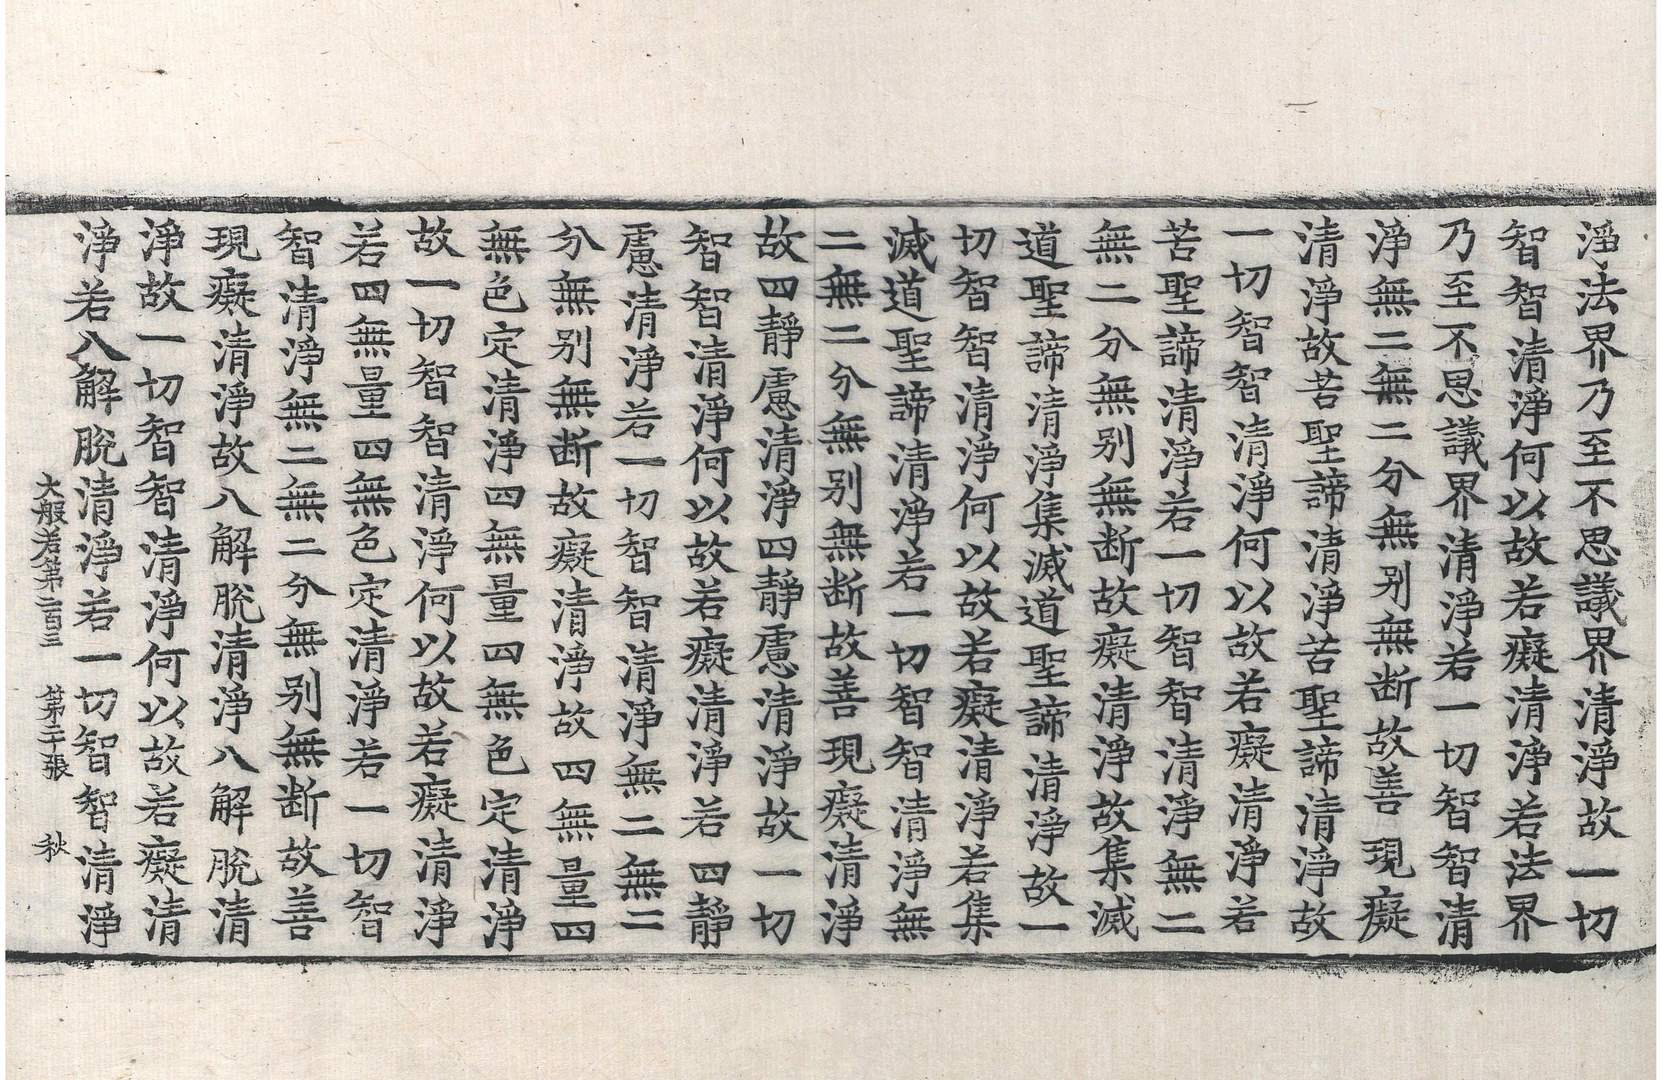 淨法界乃至不思議界清淨故一切
智智清淨何以故若癡清淨若法界
乃至不思議界清淨若一切智智清
淨無二無二分無别無断故善現癡
清淨故苦聖諦清淨苦聖諦清淨故
一切智智清淨何以故若癡清淨若
苦聖諦清淨若一切智智清淨無二
無二分無别無断故癡清淨故集滅
道聖諦清淨集滅道聖諦清淨故一
切智智清淨何以故若癡清淨若集
滅道聖諦清淨若一切智智清淨無
二無二分無别無断故善現癡清淨
故四靜慮清淨四靜慮清淨故一切
智智清淨何以故若癡清淨若四靜
慮清淨若一切智智清淨無二無二
分無别無断故癡清淨故四無量四
無色定清淨四無量四無色定清淨
故一切智智清淨何以故若癡清淨
若四無量四無色定清淨若一切智
智清淨無二無二分無别無断故善
現癡清淨故八解脫清淨八解脫清
淨故一切智智清淨何以故若癡清
淨若八解脫清淨若一切智智清淨
大般若第二百三 第二十張 秋